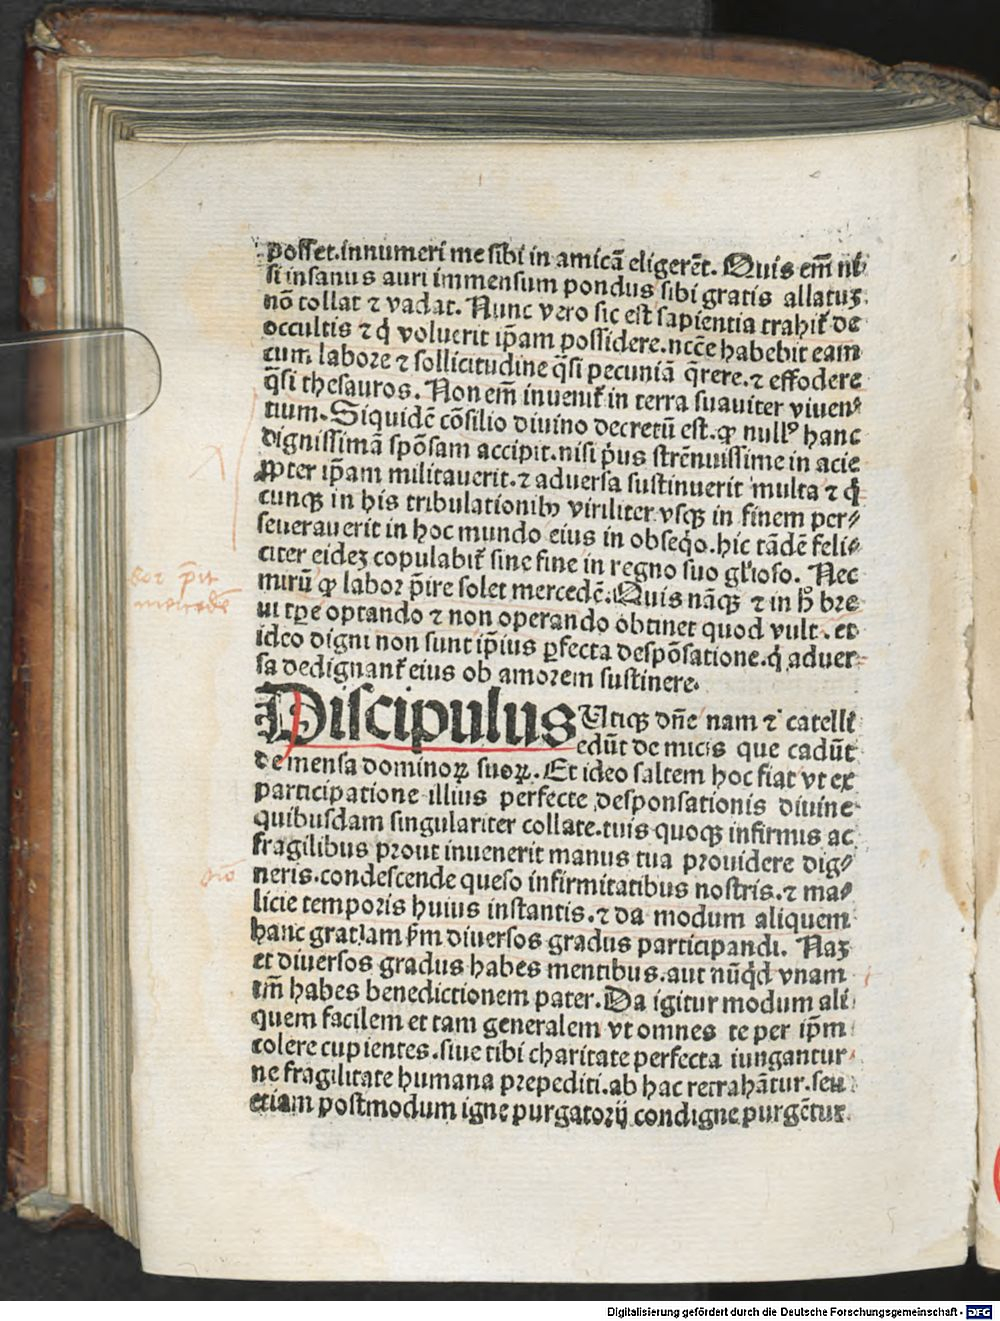 posset.innumeri me sibi in amicā eligerēt. Quis em̄ ni
si insanus auri immensum pondus sibi gratis allatuꝫ
nō tollat ⁊ vadat. Nunc vero sic est sapientia trahiť de
occultis ⁊ q̇ voluerit ip̄am possidere.nēc̄e habebit eam
cum labore ⁊ sollicitudine q̄si pecuniā q̄rere.⁊ effodere
q̄si thesauros. Non em̄ inueniť in terra suauiter viuen⸗
tium. Siquidē cōsilio diuino decretū est.ꝙ nullꝰ hanc
dignissimā spōsam accipit.nisi pͥus strēnuissime in acie
ꝓpter ip̄am militauerit.⁊ aduersa sustinuerit multa ⁊ q̇
cunqꝫ in his tribulationibꝰ viriliter vsqꝫ in finem per⸗
seuerauerit in hoc mundo eius in obseq̇o.hic tādē feli⸗
citer eideꝫ copulabiť sine fine in regno suo gl̓ioso. Nec
mirū ꝙ labor p̄ire solet mercedē. Quis nāqꝫ ⁊ in hͦ bre
ui tꝑe optando ⁊ non operando obtinet quod vult. et
ideo digni non sunt ip̄ius ꝑfecta despōsatione.q̇ aduer⸗
sa dedignanť eius ob amorem sustinere.
Discipulus Vtiqꝫ dn̄e nam ⁊ catelli
edūt de micis que cadūt
de mensa dominoꝝ suoꝝ. Et ideo saltem hoc fiat vt ex
participatione illius perfecte desponsationis diuine
quibusdam singulariter collate.tuis quoqꝫ infirmis ac
fragilibus prout inuenerit manus tua prouidere dig⸗
neris.condescende queso infirmitatibus nostris.⁊ ma⸗
licie temporis huius instantis.⁊ da modum aliquem
hanc gratiam ẜm diuersos gradus participandi. Naꝫ
et diuersos gradus habes mentibus.aut nūq̇d vnam
tm̄ habes benedictionem pater. Da igitur modum ali
quem facilem et tam generalem vt omnes te per ip̄m
colere cupientes.siue tibi charitate perfecta iungantur
ne fragilitate humana prepediti.ab hac retrahātur.seu
etiam postmodum igne purgatorij condigne purgētur.
Digitalisierung gefördert durch die Deutsche Forschungsgemeinschaft - DFG